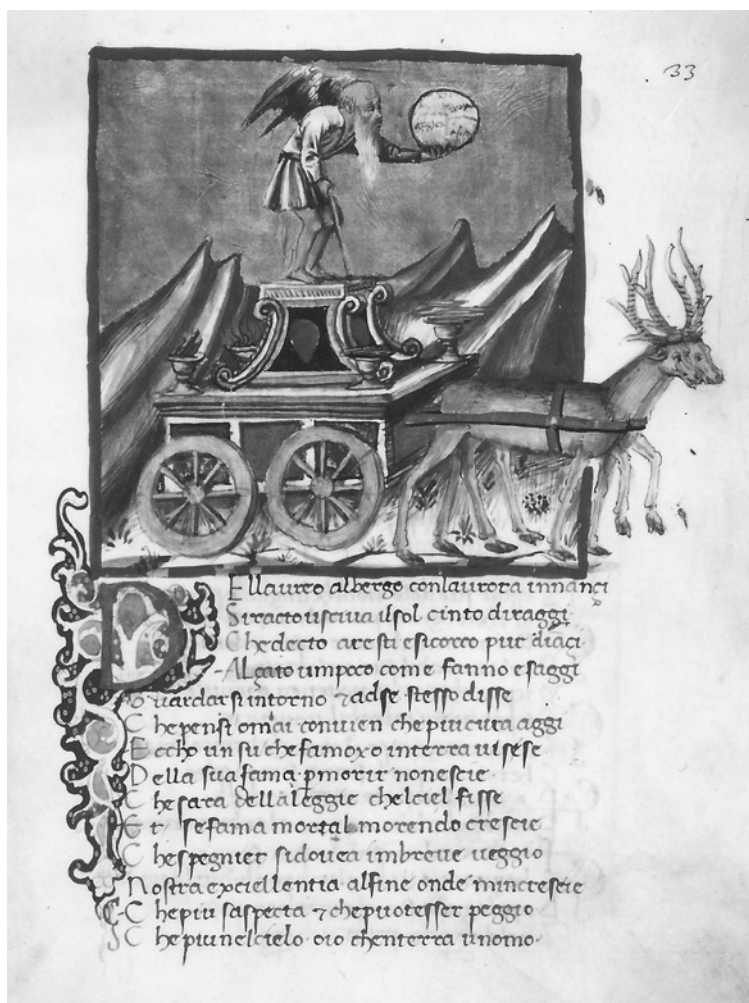 33
AFRICA
DEllaureo albergo conlaurora innançi
Siracto usciva ilsol cinto diraggi
Chedecto aresti esicorco pur diãçi.
Alçato umpoco come fanno esaggi
Guardarsi intorno ⁊ adse stesso disse
Che pensi omai convien chepiucura aggi
Eccho un su che famoxo interra visese
Della sua fama. pmorir nonescie.
Chesara dellaleggie chelciel fisse
Et sefama mortal morendo crescie
Chespegnier sidovea imbreve veggio
Nostra excellentia alfine onde mincrescie
Chepiu saspecta ⁊ chepuotesser peggio
Chepiu nelcielo. oio chenterra unomo.